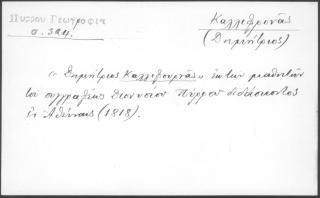 Πύρρου Γεωγραφία
σ. 324.
Καλλιφρονᾶς
(Δημήτριος)
"Δημήτριος Καλλιφουρνᾶς" ἐκ τῶν μαθητῶν
τοῦ συγγραφέως Διονυσίου Πύρρου διδάσκοντος
ἐν Ἀθήναις (1818).